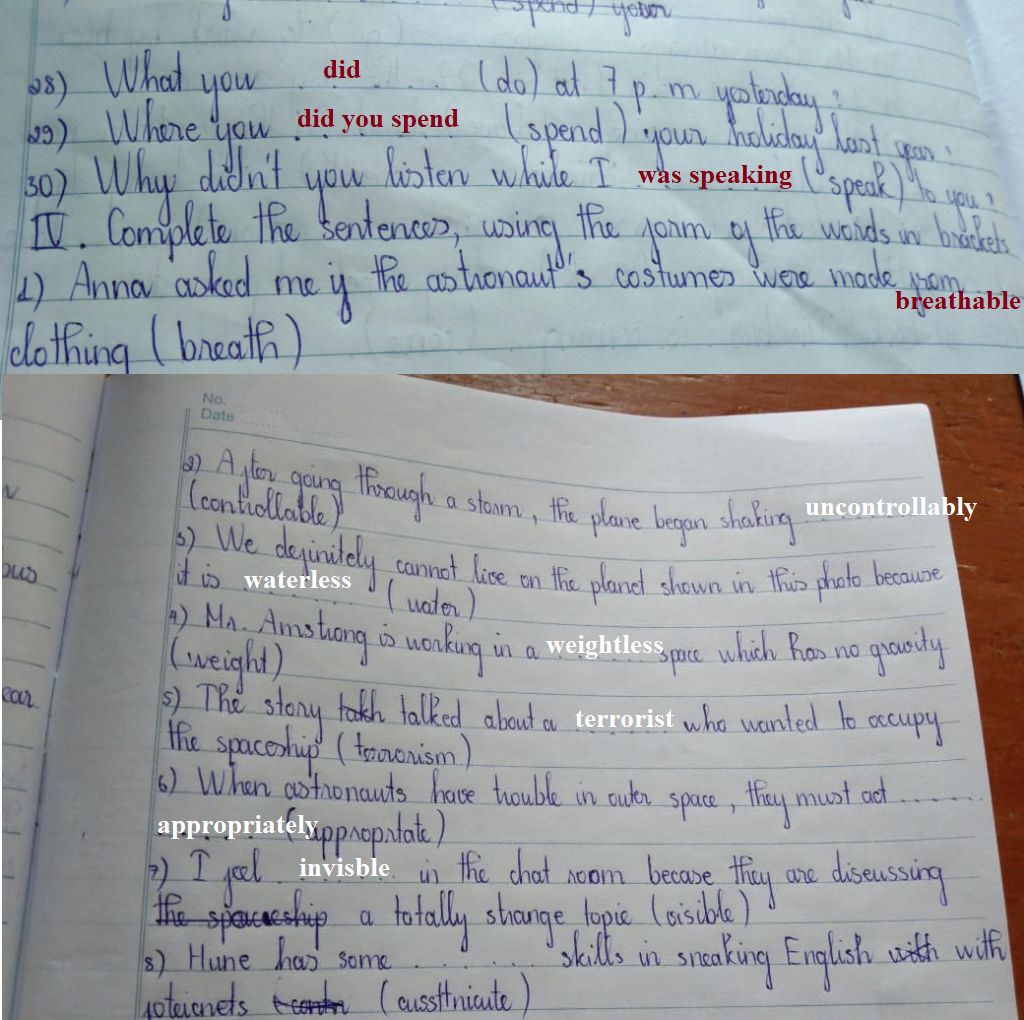 (spend) your
28) What you did ........ (do) at 7 p.m yesterday?
29) Where you did you spend (spend) your holiday last year?
30) Why didn't you listen while I was speaking (speak) to you?
IV. Complete the sentences, using the form of the words in brackets
1) Anna asked me if the astronaut's costumes were made from breathable
clothing (breath)
No.
Date
2) After going through a storm, the plane began shaking uncontrollably
(controllable)
3) We definitely cannot live on the planet shown in this photo because
it is waterless (water)
4) Mr. Amstrong is working in a weightless space which has no gravity
(weight)
5) The story talked about a terrorist who wanted to occupy
the spaceship (terrorism)
6) When astronauts have trouble in outer space, they must act ........
appropriately (appropriate)
7) I feel invisble in the chat room becase they are discussing
the spaceship a totally strange topic (visible)
8) Hune has some ........ skills in speaking English with with